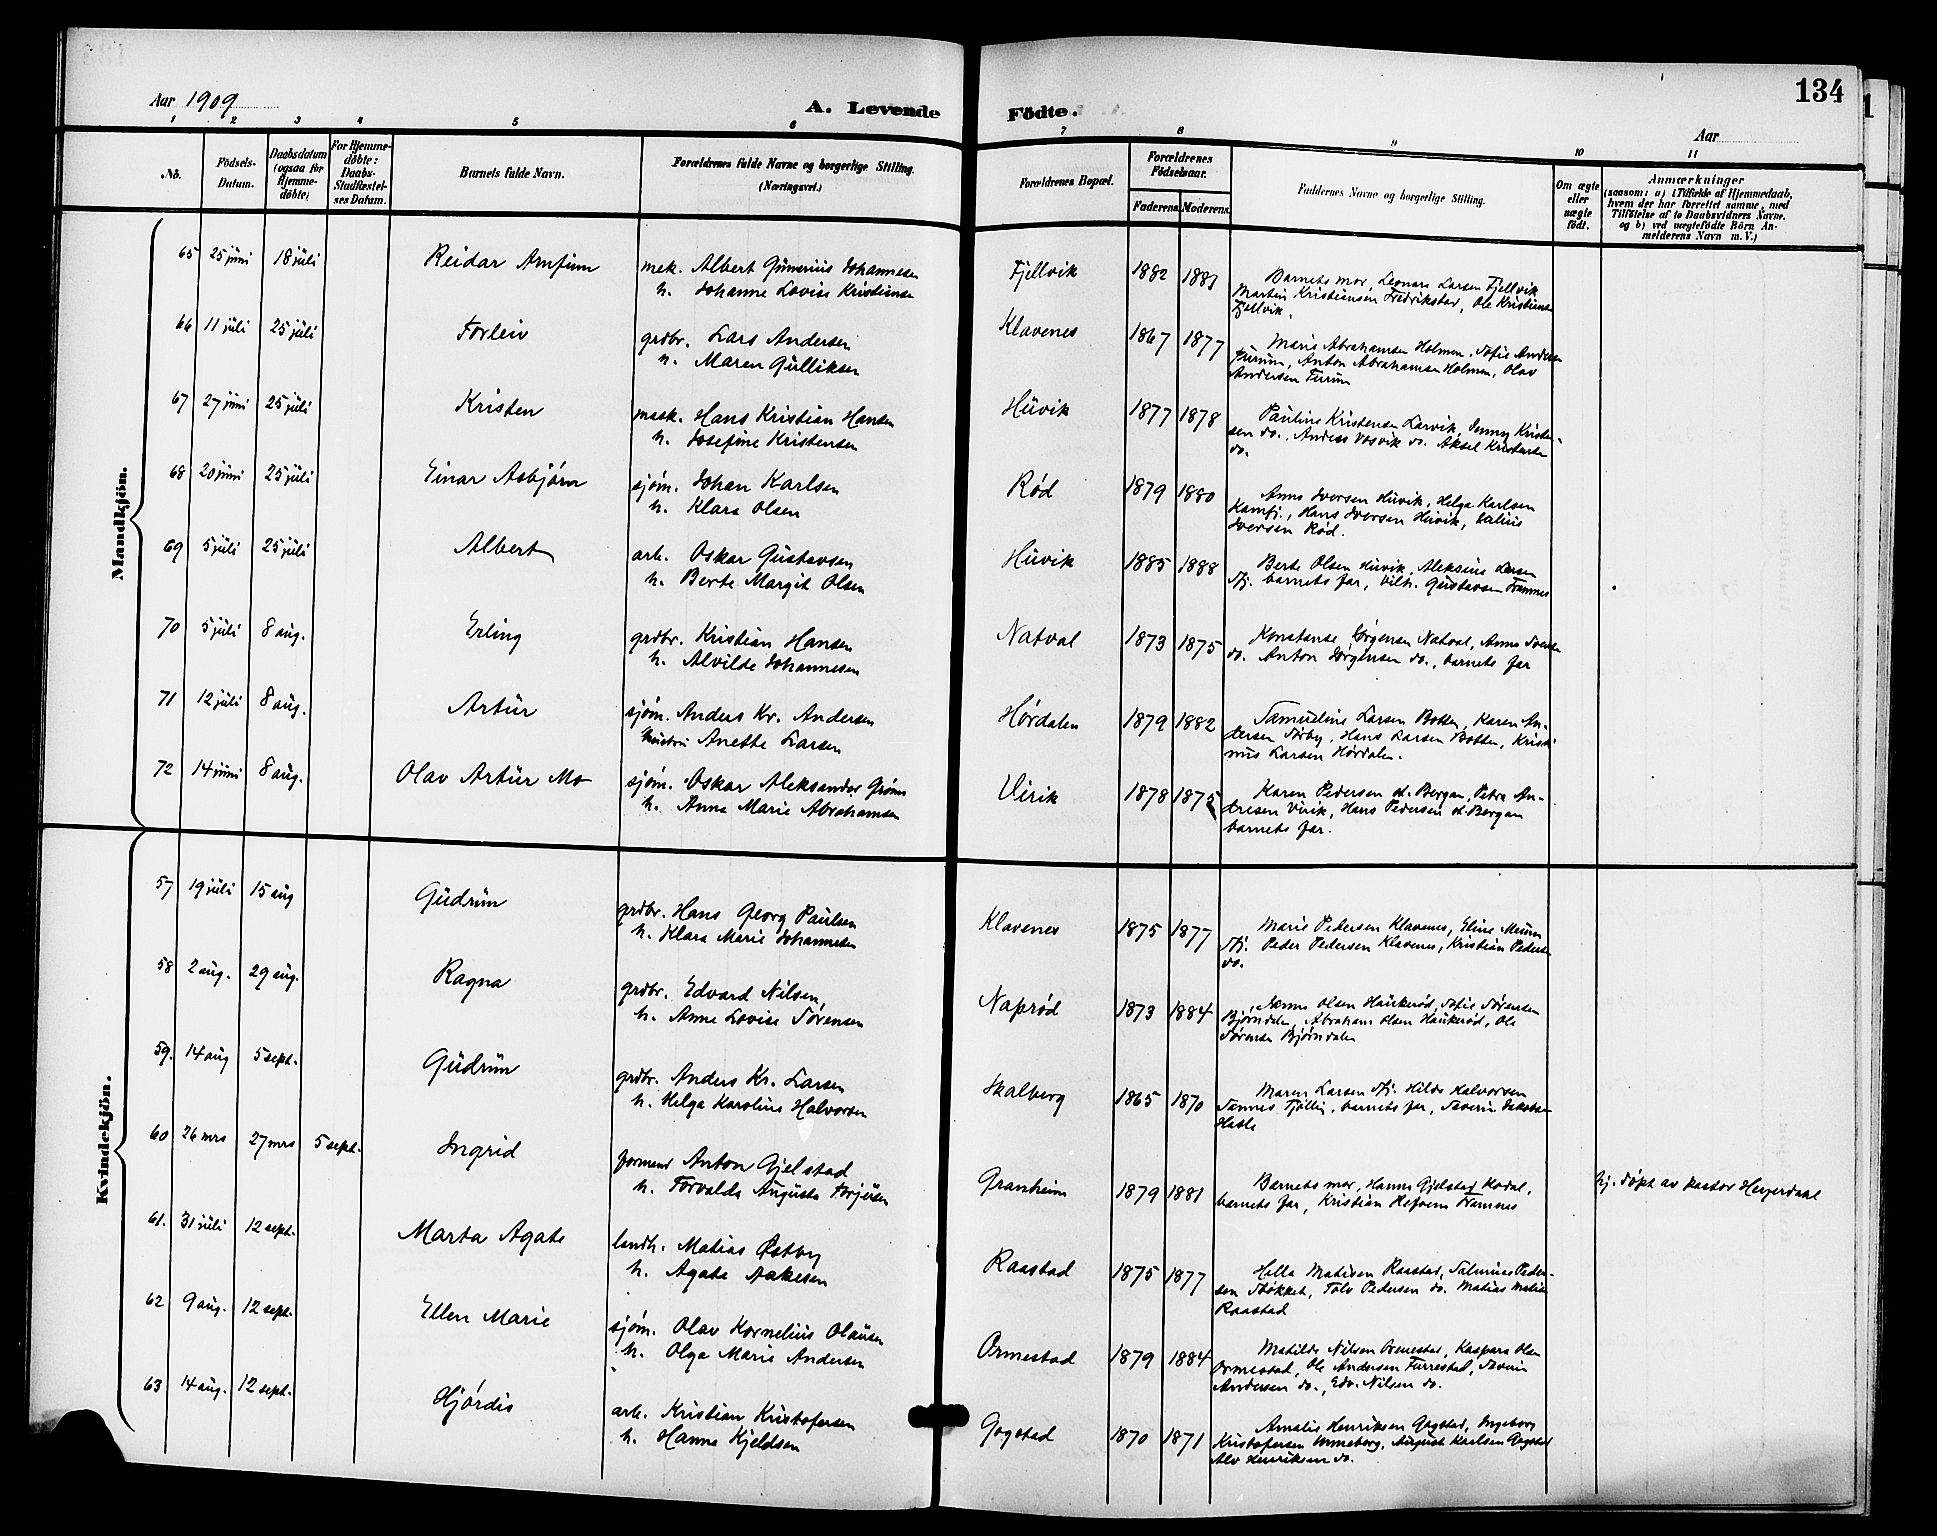 134
Aar 1909
A. Levende Födte.
Aar
1 2 3 4 5 6 7 8 9 10 11
No.
Födsels-Datum.
Daabsdatum (ogsaa for Hjemme-döbte)
For Hjemme-döbte: Daabs-Stadfæstel-ses Datum.
Barnets fulde Navn.
Forældrenes fulde Navne og borgerlige Stilling. (Næringsvei.)
Forældrenes Bopæl.
Forældrenes Födselsaar.
Faderens. Moderens.
Faddernes Navne og borgerlige Stilling.
Om ægte eller uægte födt.
Anmærkninger
(saasom: a) i Tilfælde af Hjemmedaab, hvem der har forrettet samme, med Tilföielse af to Daabsvidners Navne. og b) ved uægtefödte Börn An-melderens Navn m. V.)
Mandkjön.
65 25 juni 18 juli Reidar Arnfinn mek. Albert Gunerius Johannesen Fjellvik 1882 1881 Barnets mor, Leonard Larsen Fjellvik
h. Johanne Lovise Kristiansen Martin Kristiansen Fredrikstad, Ole Kristiansen
Fjellvik.
66 11 juli 25 juli Torleiv grdbr. Lars Andersen Klavenes 1867 1877 Marie Abrahamsen Holmen, Sofie Andersen
h. Maren Gulliksen Furum, Anton Abrahamsen Holmen, Olav
Andersen Furum
67 27 juni 25 juli Kristen mask. Hans Kristian Hansen Huvik 1877 1878 Pauline Kristensen Larvik, Jenny Kristen-
h. Josefine Kristensen sen do., Anders Vasvik do. Aksel Kristensen
do.
68 20 juni 25 juli Einar Asbjørn sjøm. Johan Karlsen Rød 1879 1880 Anna Iversen Huvik, Helga Karlsen
h. Klara Olsen Kamfj., Hans Iversen Huvik, Julius
Iversen Rød.
69 5 juli 25 juli Albert arb. Oskar Gustavsen Huvik 1885 1888 Berte Olsen Huvik, Aleksius Larsen
h. Berte Margit Olsen Sfj. barnets far, Vilh. Gustavsen Framnes
70 5 juli 8 aug. Erling grdbr. Kristian Hansen Natval 1873 1875 Konstanse Jørgensen Natval, Anna Iversen
h. Alvilde Johannesen do. Anton Jørgensen do., barnets far
71 12 juli 8 aug. Artur sjøm. Anders Kr. Andersen Hørdalen 1879 1882 Samueline Larsen Botten, Karen An-
hustru Anette Larsen dersen Torby, Hans Larsen Botten, Kristi
nus Larsen Hørdalen.
72 14 juni 8 aug. Olav Artur Mo sjøm. Oskar Aleksander Grønn Virik 1878 1875 Karen Pedersen st. Bergan, Petra An-
h. Anna Marie Abrahamsen dresen Virik, Hans Pedersen st. Bergan
barnets far.
Kvindekjön.
57 19 juli 15 aug Gudrun grdbr. Hans Georg Paulsen Klavenes 1875 1877 Marie Pedersen Klavenes, Eline Meum
h. Klara Marie Johannesen Sfj. Peder Pedersen Klavenes, Kristian Pedersen
do.
58 2 aug. 29 aug. Ragna grdbr. Edvard Nilsen, Naprød 1873 1884 Anna Olsen Haukerød, Sofie Sørensen
h. Anne Lovise Sørensen Bjørndalen, Abraham Olsen Haukerød, Ole
Sørensen Bjørndalen
59. 14 aug 5 sept. Gudrun grdbr. Anders Kr. Larsen Skalberg 1865 1870 Maren Larsen Sfj. Hilda Halvorsen
h. Helga Karoline Halvorsen Sannes Tjølling, barnets far, Severin Jakobsen
Hasle
60 26 mrs 27 mrs 5 sept. Ingrid formand Anton Gjelstad Granheim 1879 1881 Barnets mor, Hanna Gjelstad Kodal, hj. døpt av pastor Heyerdahl
h. Torvalda Augusta Torjusen barnets far, Kristian Framnes
61. 31 juli 12 sept. Marta Agate landh. Matias Østby Raastad 1875 1877 Hella Matisen Raastad, Salmine Peder-
h. Agate Aakesen sen Stokket, Tolv Pedersen do. Matias Matisen
Raastad
62 9 aug. 12 sept. Ellen Marie sjøm. Olav Kornelius Olausen Ormestad 1879 1884 Matilde Nilsen Ormestad, Kaspara Olsen
h. Olga Marie Andersen Ormestad, Ole Andersen Furrestad, Severin
Andersen do., Edv. Nilsen do.
63 14 aug. 12 sept. Hjørdis arb. Kristian Kristofersen Gogstad 1870 1871 Amalie Henriksen Gogstad, Ingeborg
h. Hanna Kjeldsen Kristofersen Unneberg, August Karlsen Gogstad
Alv Henriksen do.